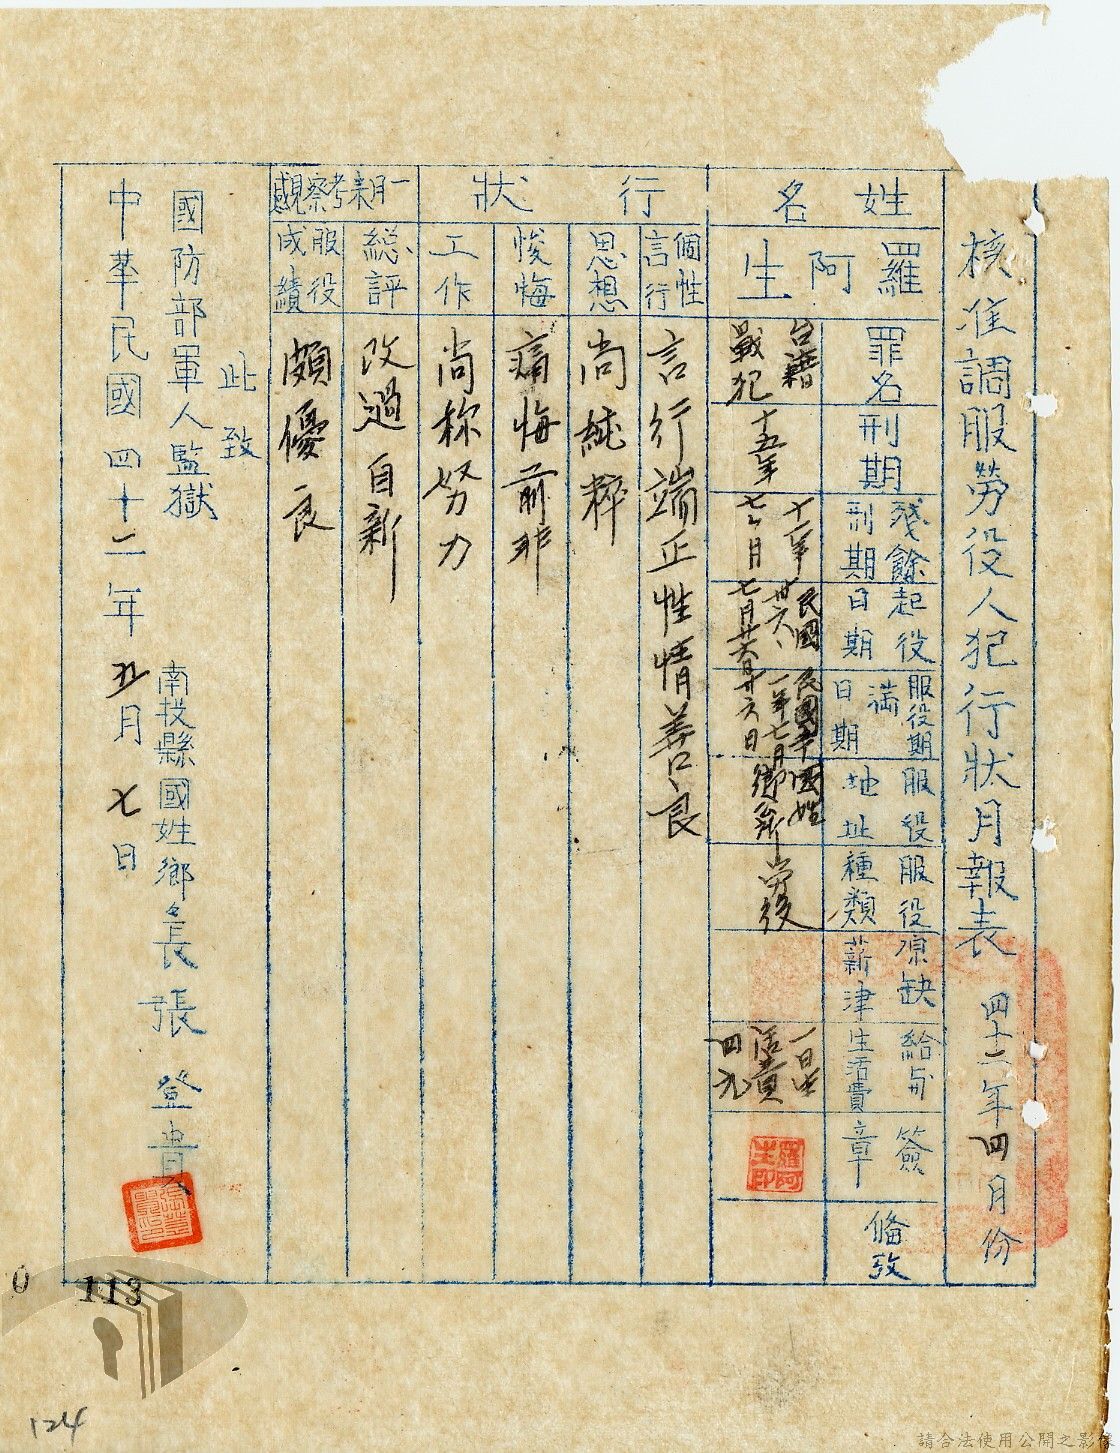 核准調服勞役人犯行狀月報表 四十二年四月份
姓名
羅阿生
罪名
台籍
戰犯
刑期
十五年
殘餘
刑期
十一年
七个月
起役
日期
民國
卅六、
七月廿六日
服役期
滿
日期
民國五十
一年七月
廿六日
服役
地址
國姓
鄉公所
服役
種類
勞役
原缺
薪津
給與
生活費
一日生
活費
四元
簽
章
羅阿
生印
備攷
行狀
個性
言行
言行端正性情善良
思想
尚純粹
悛悔
痛悔前非
工作
尚称努力
一月來考察觀感
総評
改過自新
服役
成績
頗優良
此致
國防部軍人監獄
南投縣國姓鄉鄉長張登貴
中華民國四十二年五月七日
0 113
124
請合法使用公開之影像